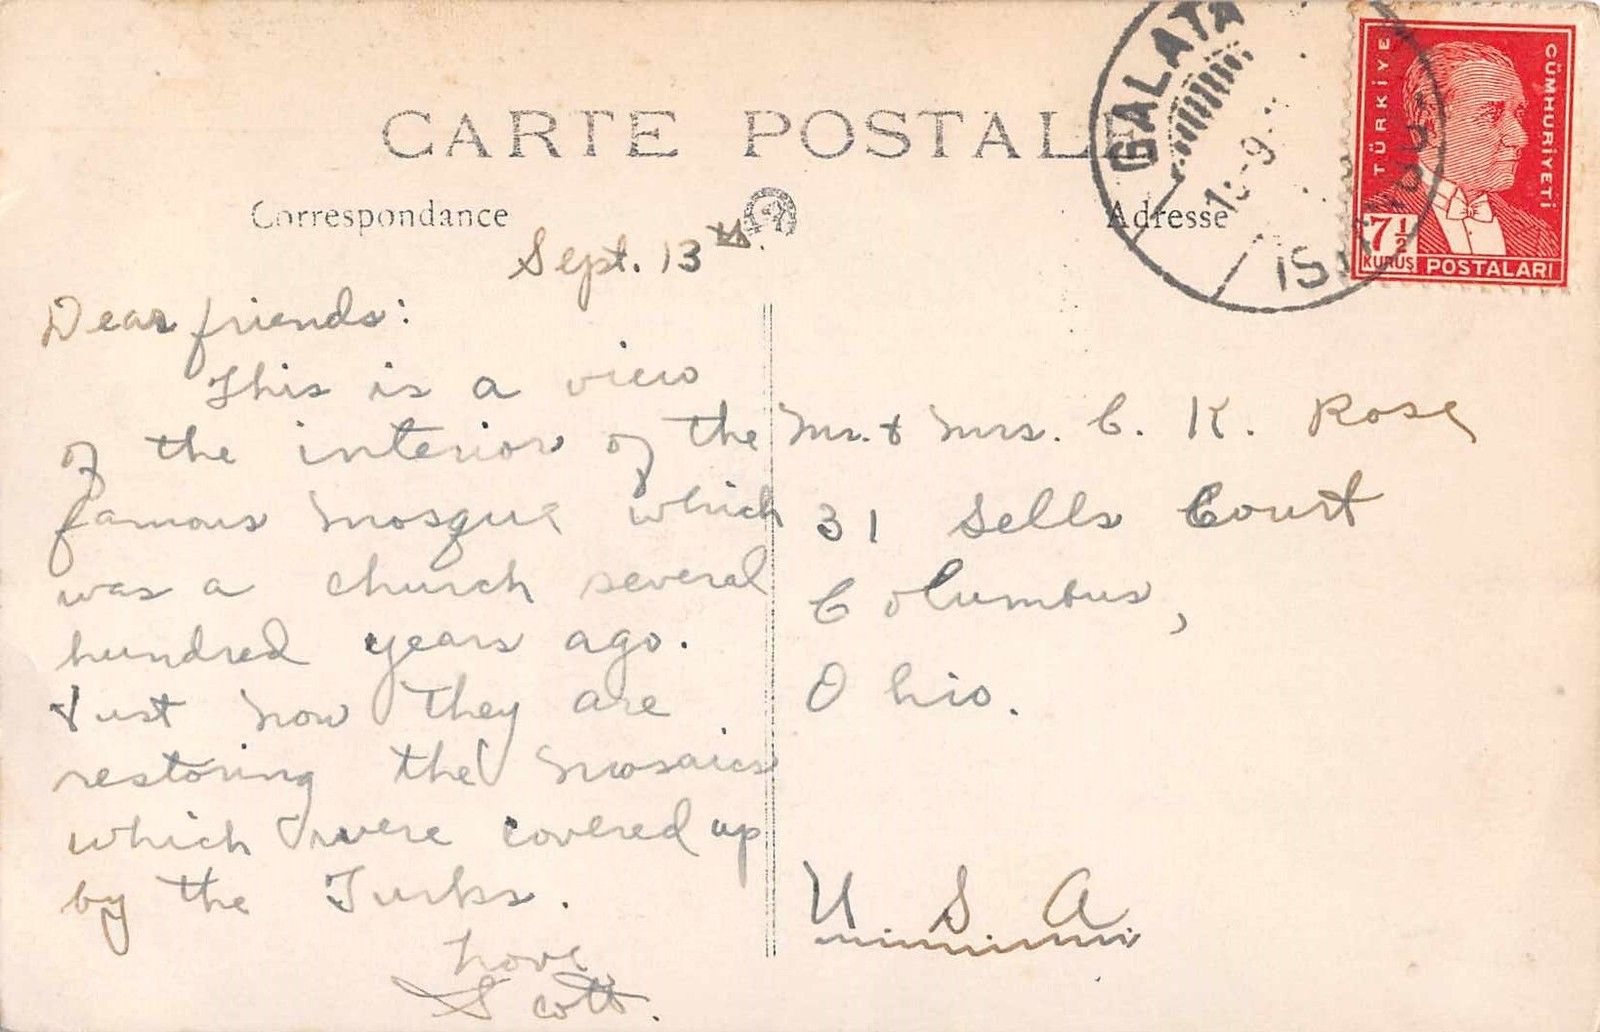 CARTE POSTALE
Correspondance
Adresse
GALATA
ISTANBUL
TÜRKİYE
CÜMHURİYETİ
7½
KURUŞ POSTALARI
Sept. 13
Dear friends:
This is a view
of the interior of the
famous mosque which
was a church several
hundred years ago.
Just now they are
restoring the mosaics
which were covered up
by the Turks.
Love
Scott.
Mr. & Mrs. C. K. Rose
31 Sells Court
Columbus,
Ohio.
U S A